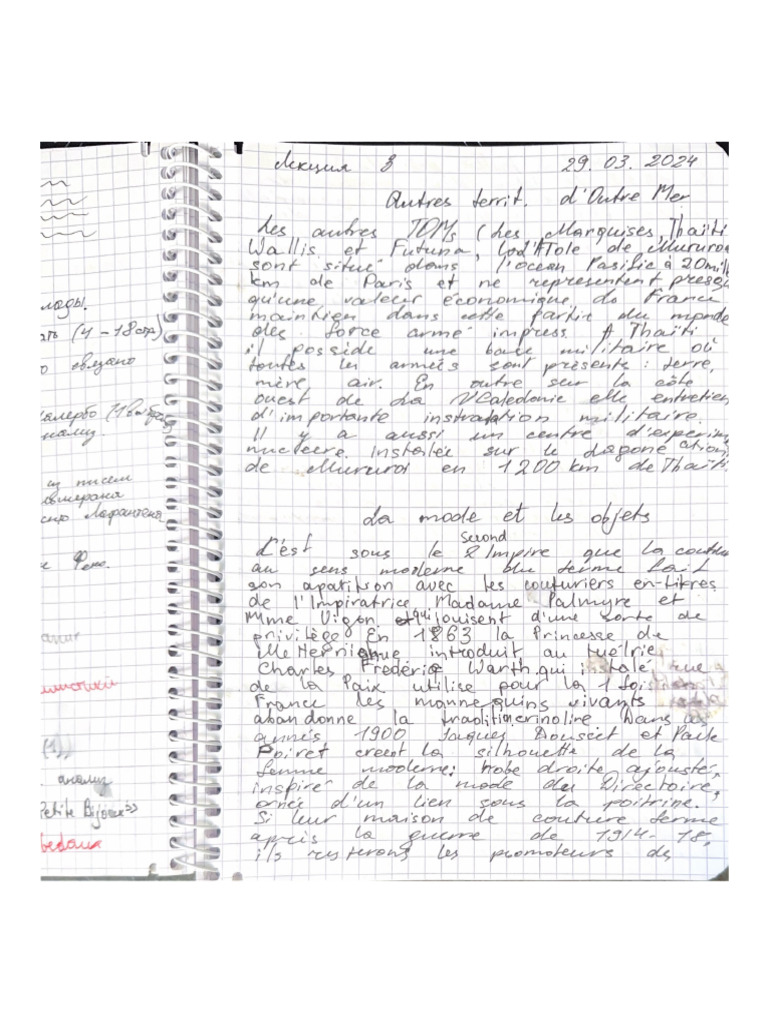 лады.
ть (4-18стр)
о связано
(1 выбр)
анализ.
из писем
Лафонтена
е Фено.
(1))
анализ
Petite Bijoux»
Лекция 8 29.03.2024
Autres territ. d'Outre Mer
Les autres TOMs (Les Marquises, Thaïti
Wallis et Futuna, L'ATole de Mururoa
sont situé dans l'ocean Pasific à 20mill
km de Paris et ne representent presq
qu'une valeur économique, do France
maintien dans cette partie du monde
des force armé impress. A Thaïti
il posside une base militaire où
toutes les armées sont présents: terre,
mère, air. En outre sur la côte
ouest de La N'Caledonie elle entretien
d'importante instralation militaire.
Il y a aussi un centre d'experim
nucleere. instalée sur le Lagone ation
de Mururoi en 1200 km de Thaïti.
La mode et les objets
C'est sous le second 2 Impire que la coutur
au sens moderne du terme fait
son aparitson avec les couturiers en-titres
de l'Impiratrice, Madame Palmyre et
Mme Vigon, et qui jouisent d'une sorte de
privilège En 1863 la Princesse de
Meternique introduit au tuélrie
Charles Fréderic Warth qui instalé rue
de la Paix utilise pour la 1 fois
France les mannequins vivants
abandonne la tradition crinoline Dans as
années 1900 Jaques Douseet et Paile
Poiret creent la silhouette de la
femme moderne: robe droite ajousté,
inspiré de la mode du Directoire,
ornée d'un lien sous la poitrine.
Si leur maison de couture ferme
après la guerre de 1914-18,
ils resterons les promoteurs de